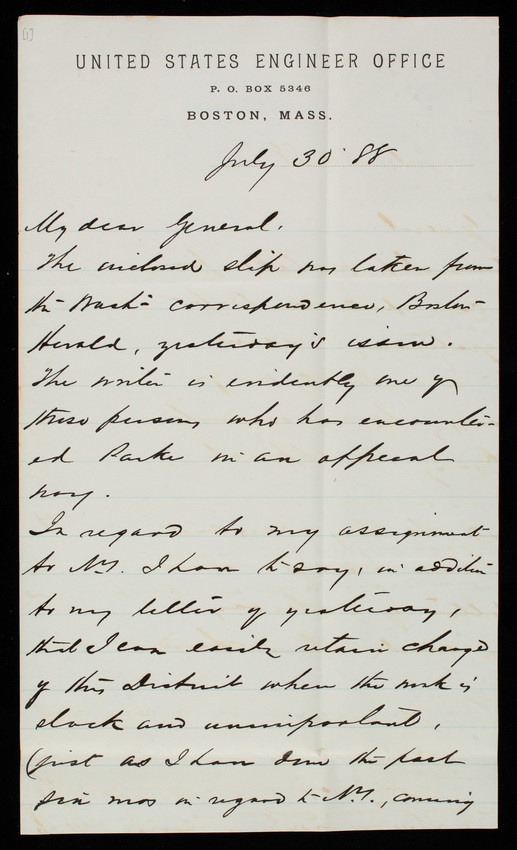 [1]
UNITED STATES ENGINEER OFFICE
P. O. BOX 5346
BOSTON, MASS.
July 30 88
My dear General.
The inclosed slip was taken from
the Wash= correspondence, Boston
Herald, yesterday's issue.
The writer is evidently one of
those persons who has encounter-
ed Parke in an official
way.
In regard to my assignment
to N.Y. I have to say, in addition
to my letter of yesterday,
that I can easily retain charge
of this District where the work is
slack and unimportant,
(just as I have done the past
six mos in regard to N.Y., coming